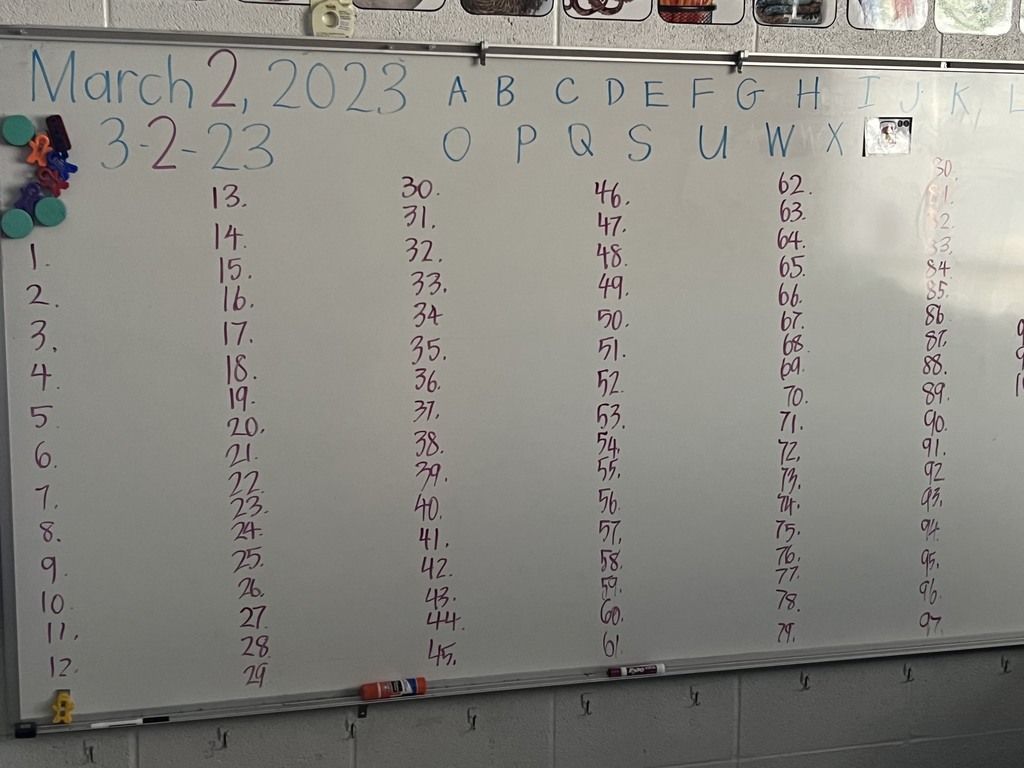 March 2, 2023
3-2-23
A B C D E F G H I J K L
O P Q S U W X
1.
2.
3.
4.
5.
6.
7.
8.
9.
10.
11.
12.
13.
14.
15.
16.
17.
18.
19.
20.
21.
22.
23.
24.
25.
26.
27.
28.
29
30.
31.
32.
33.
34
35.
36.
37.
38.
39.
40.
41.
42.
43.
44.
45.
46.
47.
48.
49.
50.
51.
52.
53.
54.
55.
56.
57.
58.
59.
60.
61.
62.
63.
64.
65.
66.
67.
68.
69.
70.
71.
72.
73.
74.
75.
76.
77.
78.
79.
80.
81.
82.
83.
84.
85.
86.
87.
88.
89.
90.
91.
92
93.
94.
95.
96.
97.